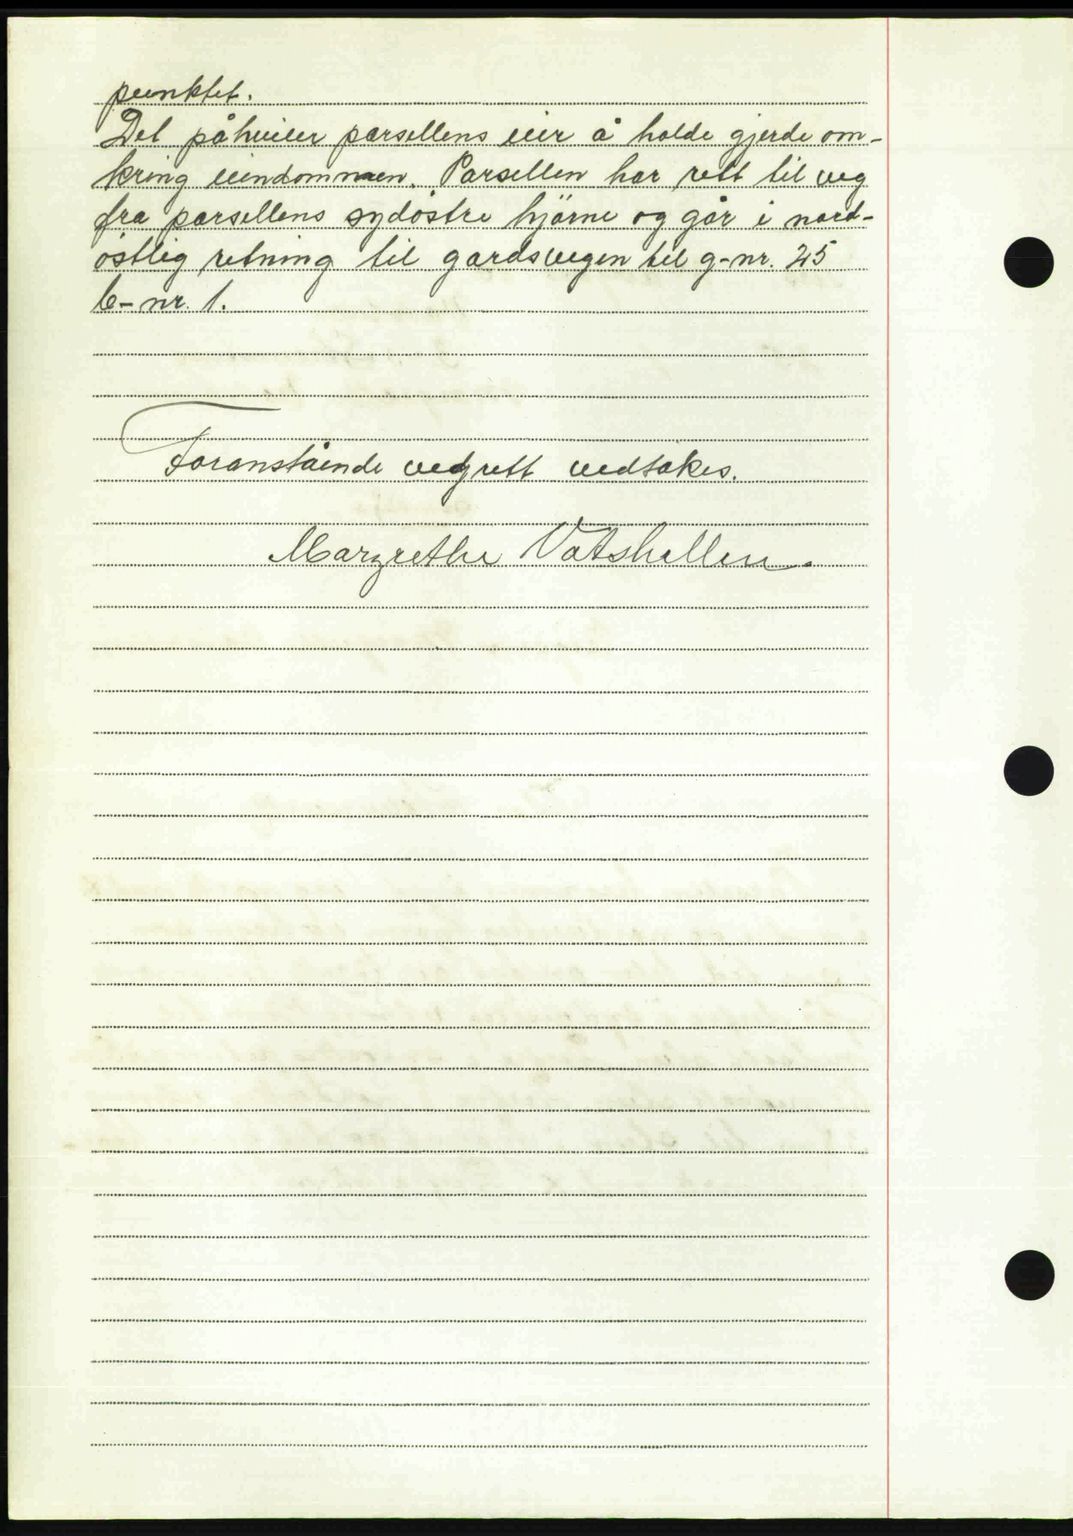 punktet.
Det påhviler parsellens eier å holde gjerde om-
kring eiendommen. Parsellen har rett til veg
fra parsellens sydöstre hjörne og går i nord-
östlig retning til gardsvegen til g-nr. 25
b-nr. 1.
Foranstående vegrett vedtakes.
Margrethe Vatshellen.